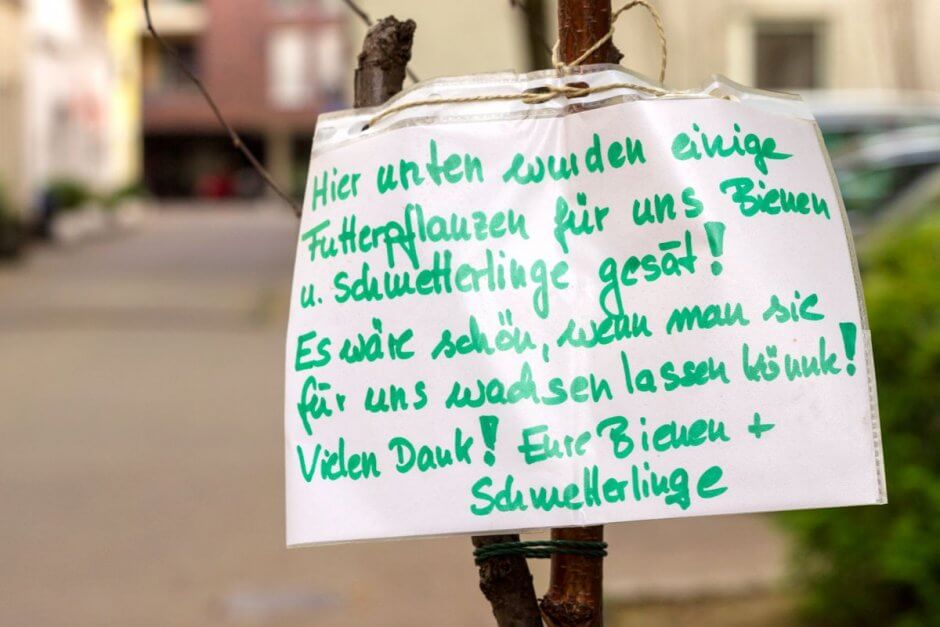 Hier unten wurden einige
Futterpflanzen für uns Bienen
u. Schmetterlinge gesät!
Es wäre schön, wenn man sie
für uns wachsen lassen könnte!
Vielen Dank! Eure Bienen +
Schmetterlinge